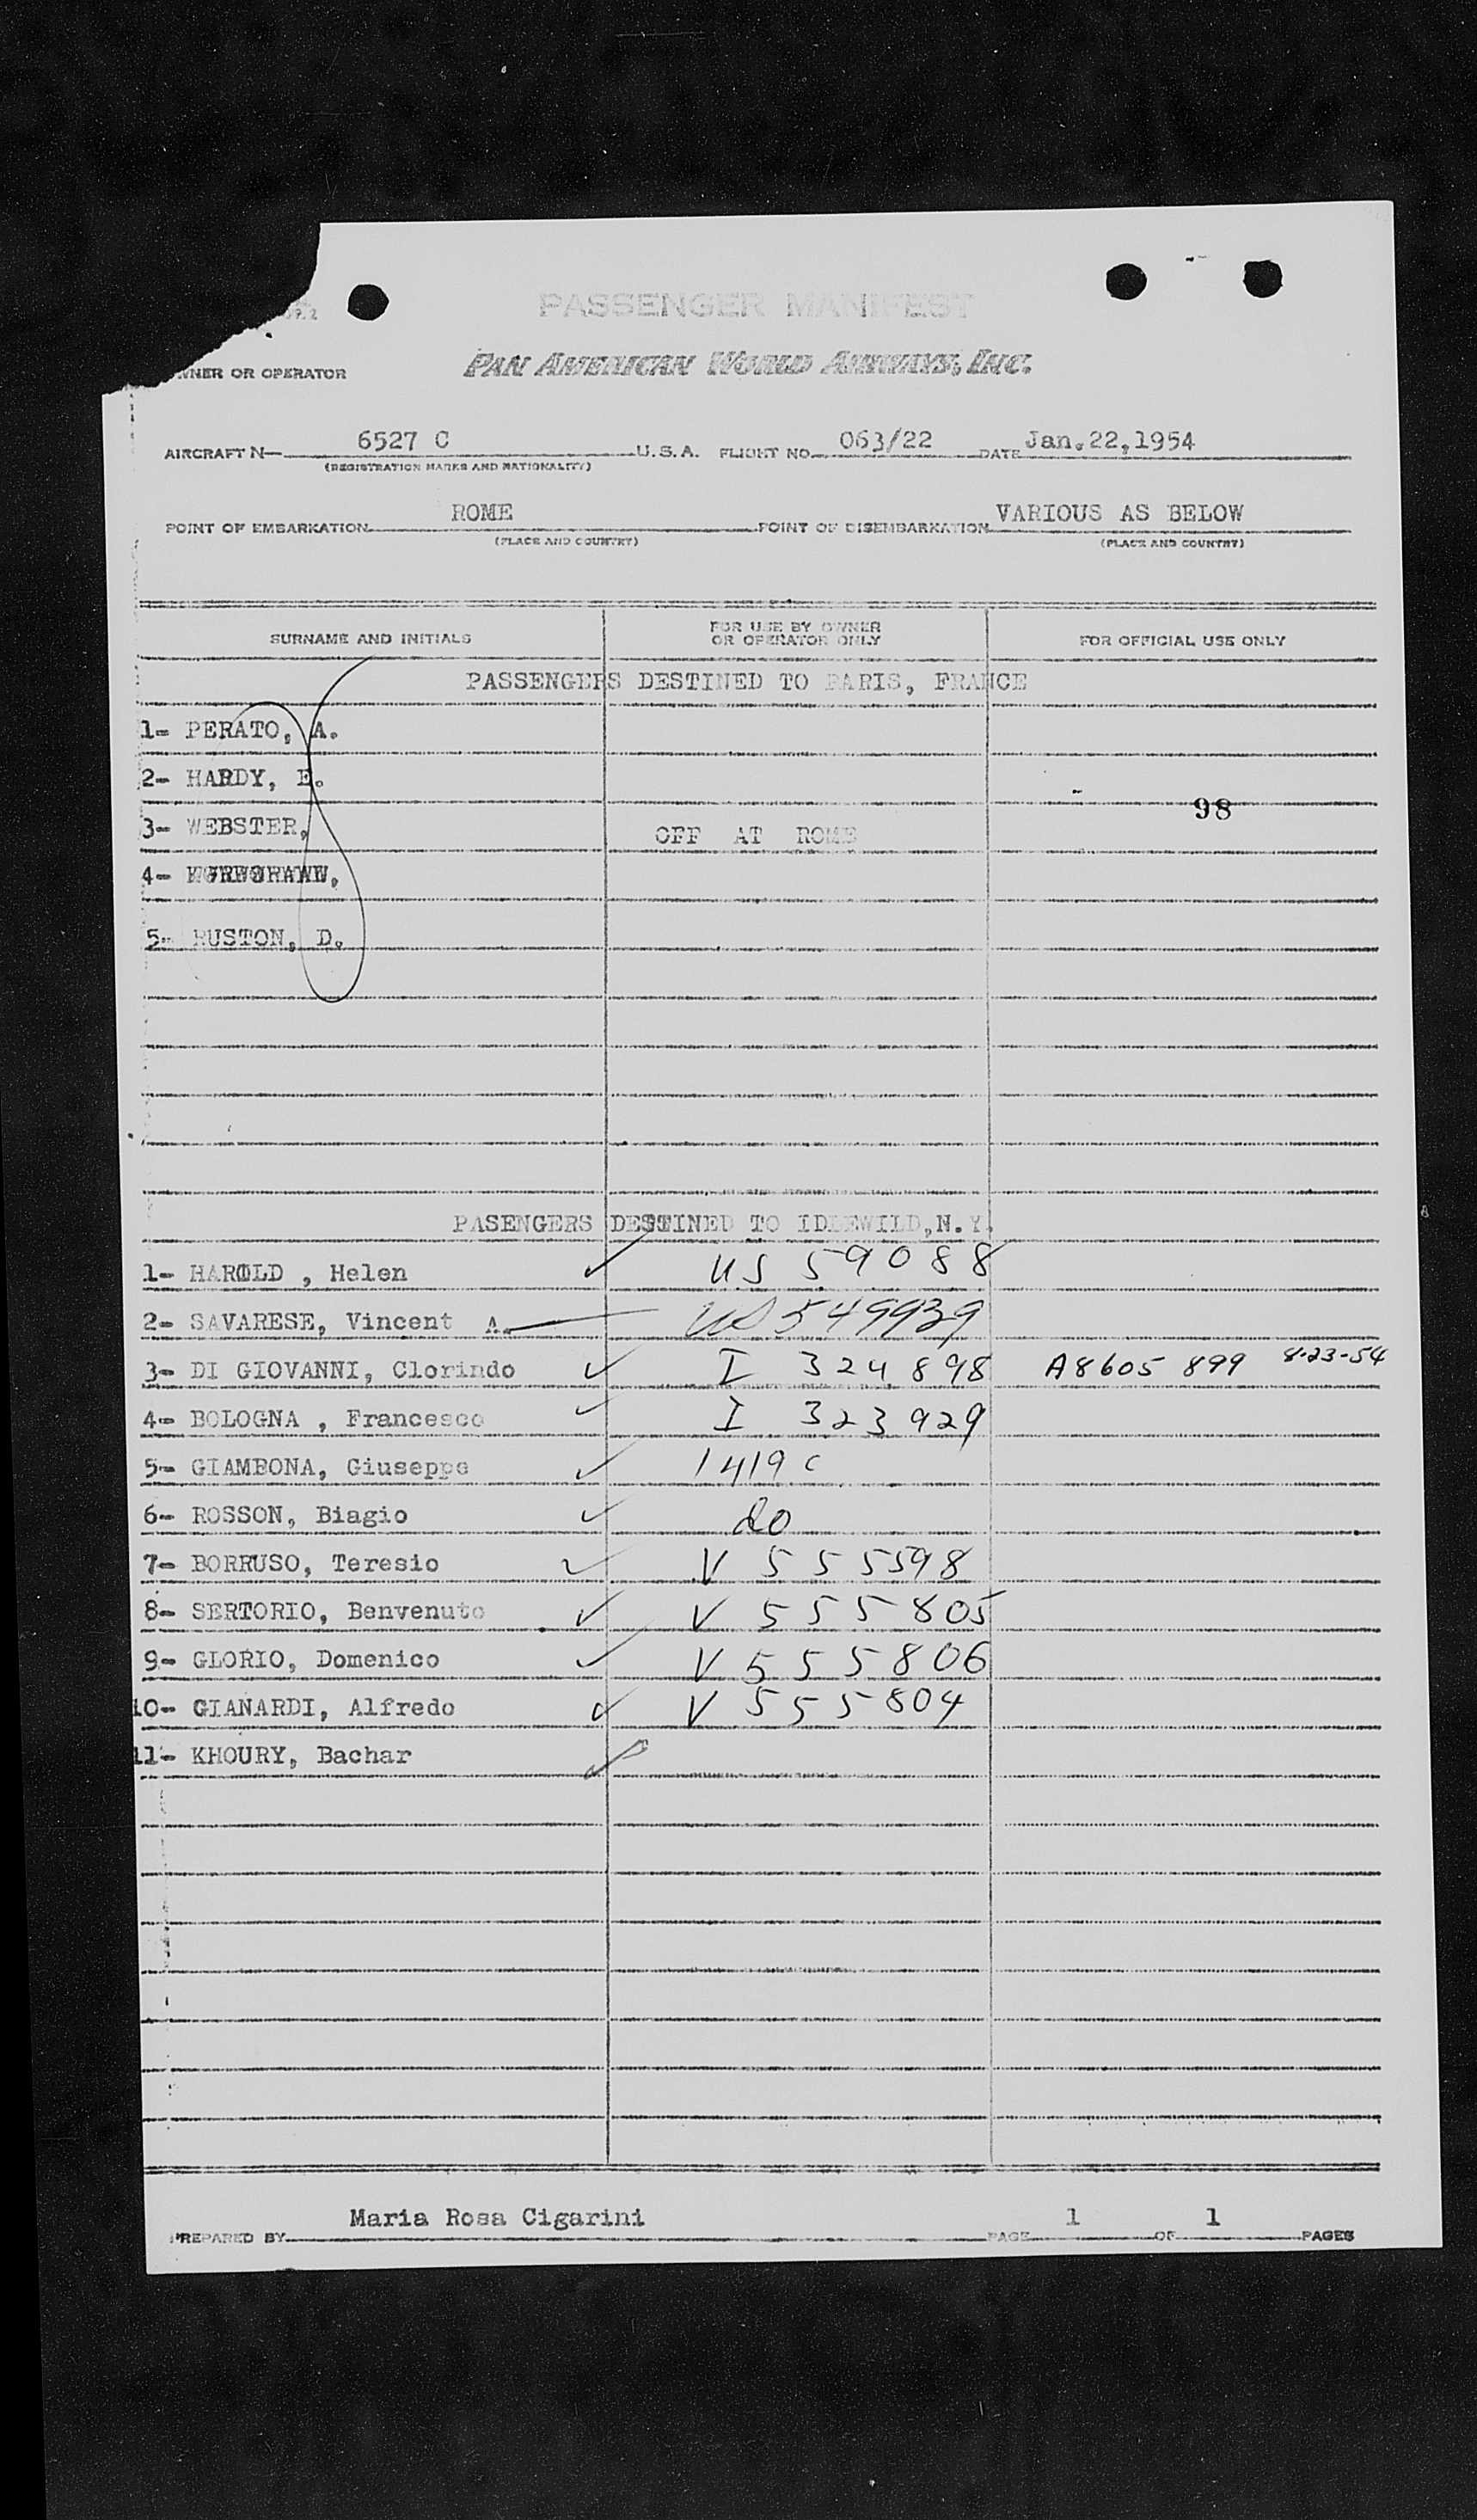 PASSENGER MANIFEST
OWNER OR OPERATOR PAN AMERICAN WORLD AIRWAYS, INC.
AIRCRAFT N— 6527 C U.S.A. FLIGHT NO. 063/22 DATE Jan.22,1954
(REGISTRATION MARKS AND NATIONALITY)
POINT OF EMBARKATION ROME POINT OF DISEMBARKATION VARIOUS AS BELOW
(PLACE AND COUNTRY) (PLACE AND COUNTRY)
SURNAME AND INITIALS FOR USE BY OWNER OR OPERATOR ONLY FOR OFFICIAL USE ONLY
PASSENGERS DESTINED TO PARIS, FRANCE
1- PERATO, A.
2- HARDY, E.
98
3- WEBSTER, OFF AT ROME
4-
5- RUSTON, D.
PASENGERS DESTINED TO IDLEWILD,N.Y.
1- HAROLD , Helen ✓ US 59088
2- SAVARESE, Vincent A. US 549939
3- DI GIOVANNI, Clorindo ✓ I 324898 A8605 899 8-23-54
4- BOLOGNA , Francesco ✓ I 323929
5- GIAMBONA, Giuseppe ✓ 1419 c
6- ROSSON, Biagio ✓ do
7- BORRUSO, Teresio ✓ V 555598
8- SERTORIO, Benvenuto ✓ V 555805
9- GLORIO, Domenico ✓ V 555806
10- GIANARDI, Alfredo ✓ V 555804
11- KHOURY, Bachar ✓
PREPARED BY Maria Rosa Cigarini PAGE 1 OF 1 PAGES